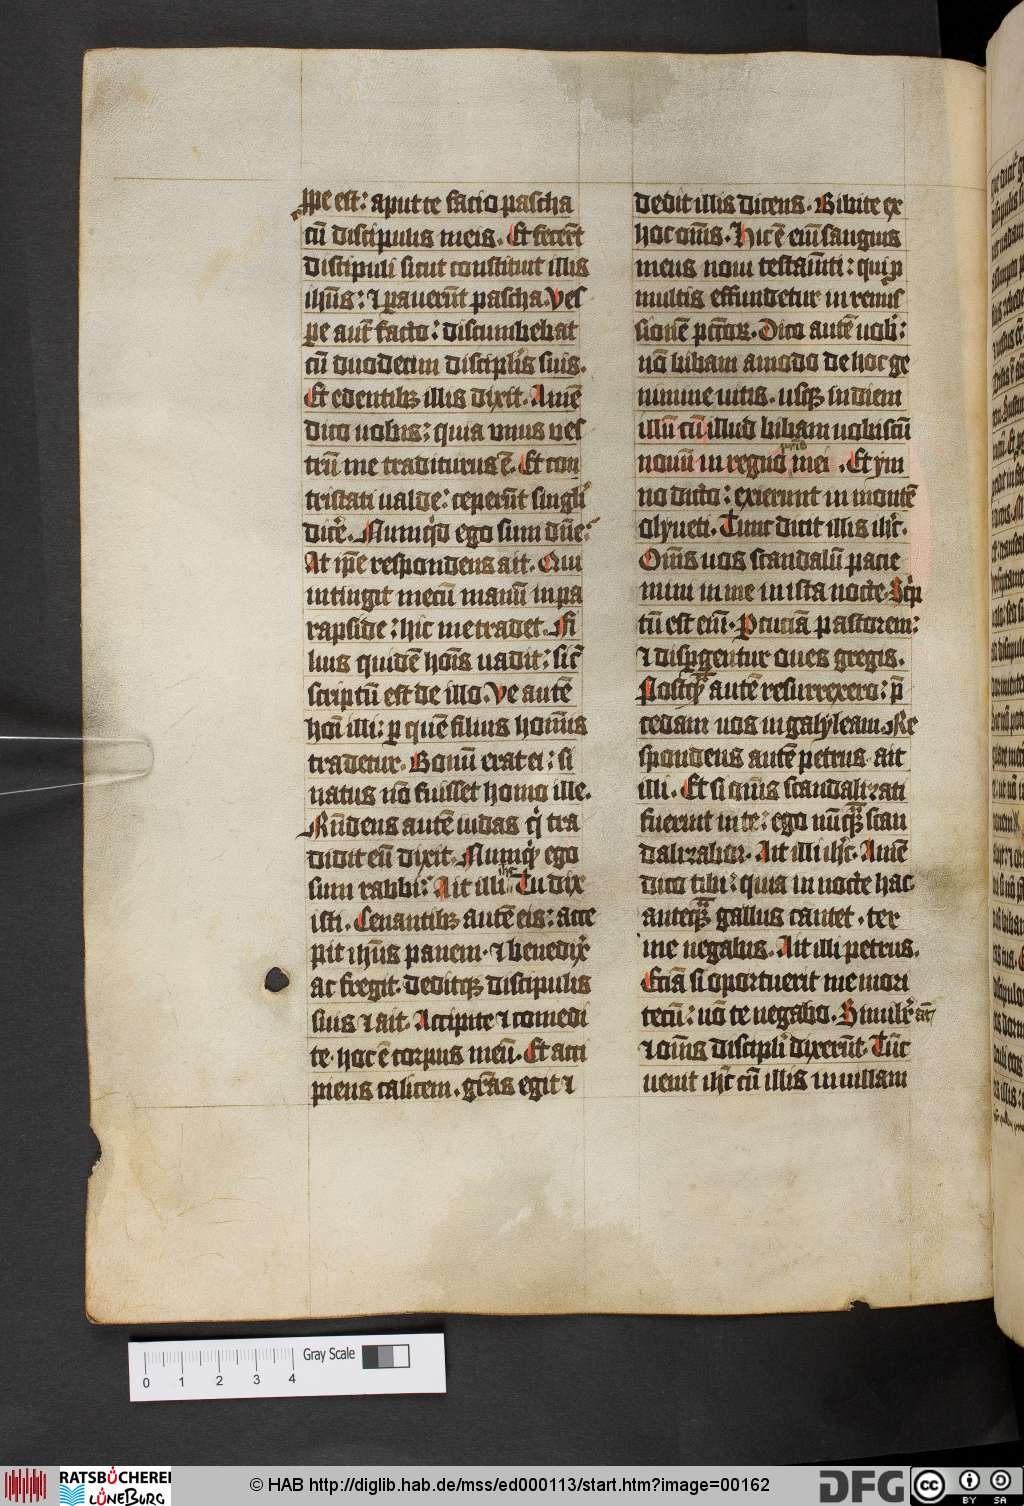 ꝓpe est: aput te facio pascha
cū discipulis meis. Et fecert̄
discipuli sicut constituit illis
ihūs: ⁊ ꝑauerūt pascha. Ves
ꝑe aut̄ facto: discumbebat
cū duodecim discipl'is suis.
Et edentibꝫ illis dixit. Amē
dico uobis: quia vnus ves
trū me traditurus ē. Et con
tristati ualde: ceperūt singl'i
dic̄e. Numqͥd ego sum dn̄e?
At ip̄e respondens ait. Qui
intingit mecū manū in pa
rapside: hic me tradet. Fi
lius quidē hoīs uadit: sic̄
scriptū est de illo. Ve autē
hoī illi: ꝑ quē filius homīs
tradetur. Bonū erat ei: si
natus nō fuisset homo ille.
Rn̄dens autē iudas qͥ tra
didit eū dixit. Numqͥd ego
sum rabbi? Ait illi ihc̄ Tu dix
isti. Cenantibꝫ autē eis: acce
pit ihūs panem. ⁊ benedix̄
ac fregit. deditqꝫ discipulis
suis ⁊ ait. Accipite ⁊ comedi
te. hoc ē corpus meū. Et acci
piens calicem. gr̄as egit ⁊
dedit illis dicens. Bibite ex
hoc om̄s. Hic ē eim̄ sanguis
meus noui testam̄ti: qui ꝓ
multis effundetur in remis
sionē pctōꝝ. Dico autē uob':
nō bibam amodo de hoc ge
nimine uitis. usqꝫ in diem
illū cū illud bibam uobiscū
nouū in regno pris̄ mei. Et ym
no dicto: exierunt in montē
olyueti. Tunc dicit illis ihc̄.
Om̄s uos scandalū pacie
mini in me in ista nocte. Scͥp
tū est eim̄. Pcuciā pastorem:
⁊ dispgentur oues gregis.
Postqͣ autē resurrexero: p̄
cedam uos in galyleam. Re
spondens autē petrus ait
illi. Et si om̄s scandalizati
fuerint in te: ego nūqͣꝫ scan
dalizabor. Ait illi ihc̄. Amē
dico tibi: quia in nocte hac
anteqͣꝫ gallus cantet. ter
me negabis. Ait illi petrus.
Eciā si oportuerit me mori
tecū: nō te negabo. Similr̄ aūt
⁊ om̄s discipli dixerūt. Tūc
uenit ihc̄ cū illis in uillam
0 1 2 3 4 Gray Scale
RATSBÜCHEREI LÜNEBURG
© HAB http://diglib.hab.de/mss/ed000113/start.htm?image=00162
DFG
CC BY SA